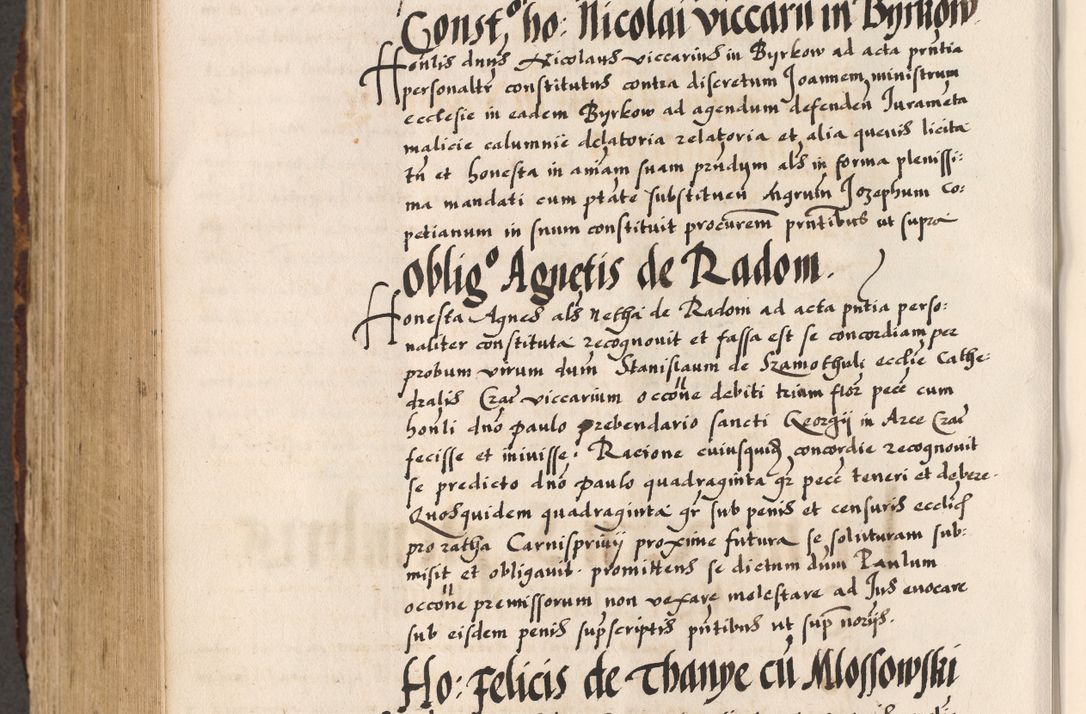 Constᵒ, ho: Nicolai viccarii in Byrkow
Honlis dnus Nicolaus viccarius in Byrkow ad acta prntia
personaltr constitutus contra discretum Joannem ministrum
ecclesie in eadem Byrkow ad agendum defenden Iurameta
malicie calumnie delatoria relatoria et alia quevis licita
tn et honesta in aniam suam prndum als in forma plenissi:
ma mandati cum ptate substituen Mgrum Jozephum Co-
petianum in suum constituit procurem prntibus ut supra
Obligᵒ Agnetis de Radom.
Honesta Agnes als Netha de Radom ad acta pntia perso:
naliter constituta recognovit et fassa est se concordiam per
probum virum dum Stanislaum de Szamothuli ecclie Cathe:
dralis Crac viccarium occone debiti trium flor pece cum
honli dno Paulo prebendario sancti Georgii in Arce Crac
fecisse et inivisse. Racione cuiusquidem concordie recognovit
se predicto dno Paulo quadraginta gr pece teneri et debere.
Quosquidem quadraginta gr sub penis et censuris ecclicis
pro ratha Carnisprivii proxime futura se soluturam sub:
misit et obligavit. promittens se dictum dum Paulum
occone premissorum non vexare molestare ad Jus evocare
sub eisdem penis supscriptis pntibus ut sup noriis.
Ho: Felicis de Thanye cu Mlossowski